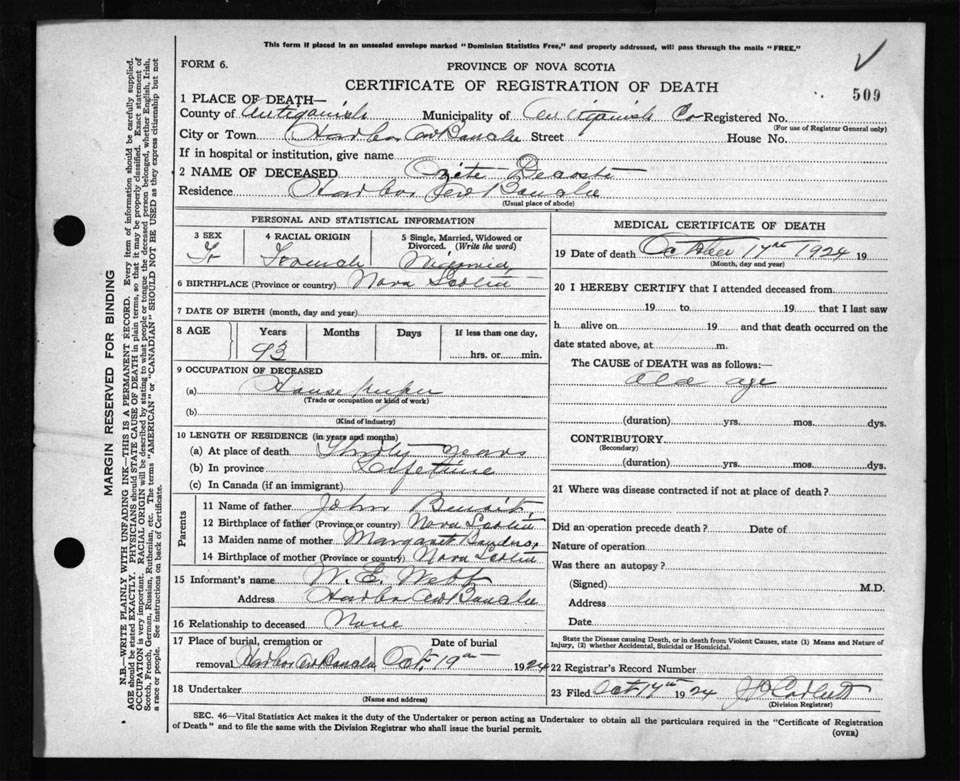 This form if placed in an unsealed envelope marked "Dominion Statistics Free," and properly addressed, will pass through the mails "FREE."
FORM 6.
PROVINCE OF NOVA SCOTIA
CERTIFICATE OF REGISTRATION OF DEATH
509
1 PLACE OF DEATH—
County of Antigonish Municipality of Antigonish Co Registered No.
(For use of Registrar General only)
City or Town Harbor Au Bouche Street House No.
If in hospital or institution, give name
2 NAME OF DECEASED Decoste
Residence Harbor Au Bouche
(Usual place of abode)
PERSONAL AND STATISTICAL INFORMATION
3 SEX 4 RACIAL ORIGIN 5 Single, Married, Widowed or Divorced. (Write the word)
F French
6 BIRTHPLACE (Province or country) Nova Scotia
7 DATE OF BIRTH (month, day and year)
8 AGE Years Months Days If less than one day,
93 hrs. or min.
9 OCCUPATION OF DECEASED
(a) House keeper
(Trade or occupation or kind of work)
(b)
(Kind of industry)
10 LENGTH OF RESIDENCE (in years and months)
(a) At place of death Thirty years
(b) In province Lifetime
(c) In Canada (if an immigrant)
Parents
11 Name of father John Benoit
12 Birthplace of father (Province or country) Nova Scotia
13 Maiden name of mother Margaret
14 Birthplace of mother (Province or country) Nova Scotia
15 Informant's name W. E. Webb
Address Harbor Au Bouche
16 Relationship to deceased None
17 Place of burial, cremation or removal Harbor Au Bouche Date of burial Oct 19th 1924
18 Undertaker
(Name and address)
MEDICAL CERTIFICATE OF DEATH
19 Date of death October 17th 1924 19
(Month, day and year)
20 I HEREBY CERTIFY that I attended deceased from
19 to 19 that I last saw
h alive on 19 and that death occurred on the
date stated above, at m.
The CAUSE of DEATH was as follows:—
old age
(duration) yrs. mos. dys.
CONTRIBUTORY
(Secondary)
(duration) yrs. mos. dys.
21 Where was disease contracted if not at place of death?
Did an operation precede death? Date of
Nature of operation
Was there an autopsy?
(Signed) M.D.
Address
Date
State the Disease causing Death, or in death from Violent Causes, state (1) Means and Nature of
Injury, (2) whether Accidental, Suicidal or Homicidal.
22 Registrar's Record Number
23 Filed Oct 1924
(Division Registrar)
SEC. 46—Vital Statistics Act makes it the duty of the Undertaker or person acting as Undertaker to obtain all the particulars required in the "Certificate of Registration
of Death" and to file the same with the Division Registrar who shall issue the burial permit.
(OVER)
MARGIN RESERVED FOR BINDING
N.B.—WRITE PLAINLY WITH UNFADING INK—THIS IS A PERMANENT RECORD. Every item of information should be carefully supplied.
AGE should be stated EXACTLY. PHYSICIANS should STATE CAUSE OF DEATH in plain terms, so that it may be properly classified. Exact statement of
OCCUPATION is very important. RACIAL ORIGIN will be described by stating to what people or tongue the deceased person belonged, whether English, Irish,
Scotch, French, German, Russian, Ruthenian, etc. The terms "AMERICAN" or "CANADIAN" SHOULD NOT BE USED as they express citizenship but not
a race or people. See instructions on back of Certificate.